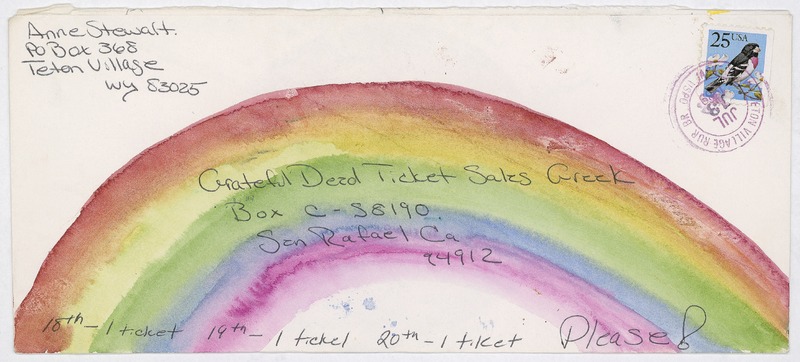 Anne Stewart.
PO Box 368
Teton Village
Wy 83025
25 USA
TETON VILLAGE RUR. BR
USPO
JUL
Grateful Dead Ticket Sales Greek
Box C-S8190.
San Rafael Ca
94912
18th - 1 ticket 19th - 1 ticket 20th - 1 ticket Please!